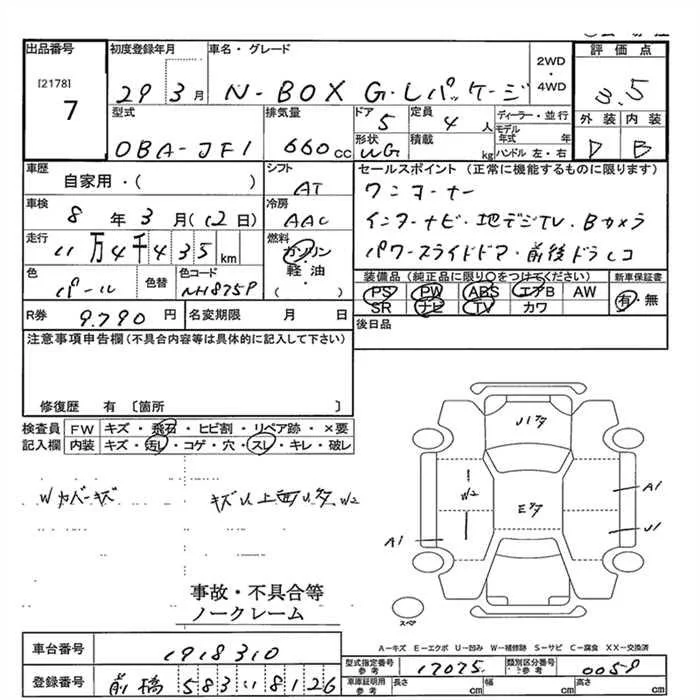 出品番号
[2178]
7
初度登録年月
29 3月
車名・グレード
N-BOX G・Lパッケージ
2WD
・
4WD
評価点
3.5
外装 内装
D B
型式
DBA-JF1
排気量
660cc
ドア
5
形状
WG
定員
4人
積載
kg
ディーラー・並行
モデル
年式 年
ハンドル 左・右
車歴
自家用・( )
シフト
AT
セールスポイント (正常に機能するものに限ります)
ワンオーナー
インターナビ・地デジTV・Bカメラ
パワースライドドア・前後ドラレコ
車検
8年3月(12日)
冷房
AAC
走行
11万4千435km
燃料
ガソリン
・
軽油
( )
色
パール
色替
色コード
NH875P
装備品(純正品に限り〇をつけてください)
PS PW ABS エアB AW
SR ナビ TV カワ
新車保証書
有・無
R券 9.790円
名変期限 月 日
後日品
注意事項申告欄(不具合内容等は具体的に記入して下さい)
修復歴 有 〔箇所 〕
検査員 FW キズ・飛石・ヒビ割・リペア跡・×要
記入欄 内装 キズ・汚レ・コゲ・穴・スレ・キレ・破レ
Wカバーキズ
キズ以上西U7タ W2
U17タ
W2
E7タ
A1
U1
A1
スペア
事故・不具合等
ノークレーム
A−キズ E−エクボ U−凹み W−補修跡 S−サビ C−腐食 XX−交換済
車台番号
1918310
型式指定番号
参考
17075
類別区分番号
参考
0059
登録番号
前橋 583 い 8126
車庫証明用
参考
長さ cm 幅 cm 高さ cm